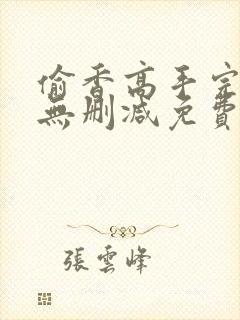 偷香高手完
無刪減免費
張雲峰